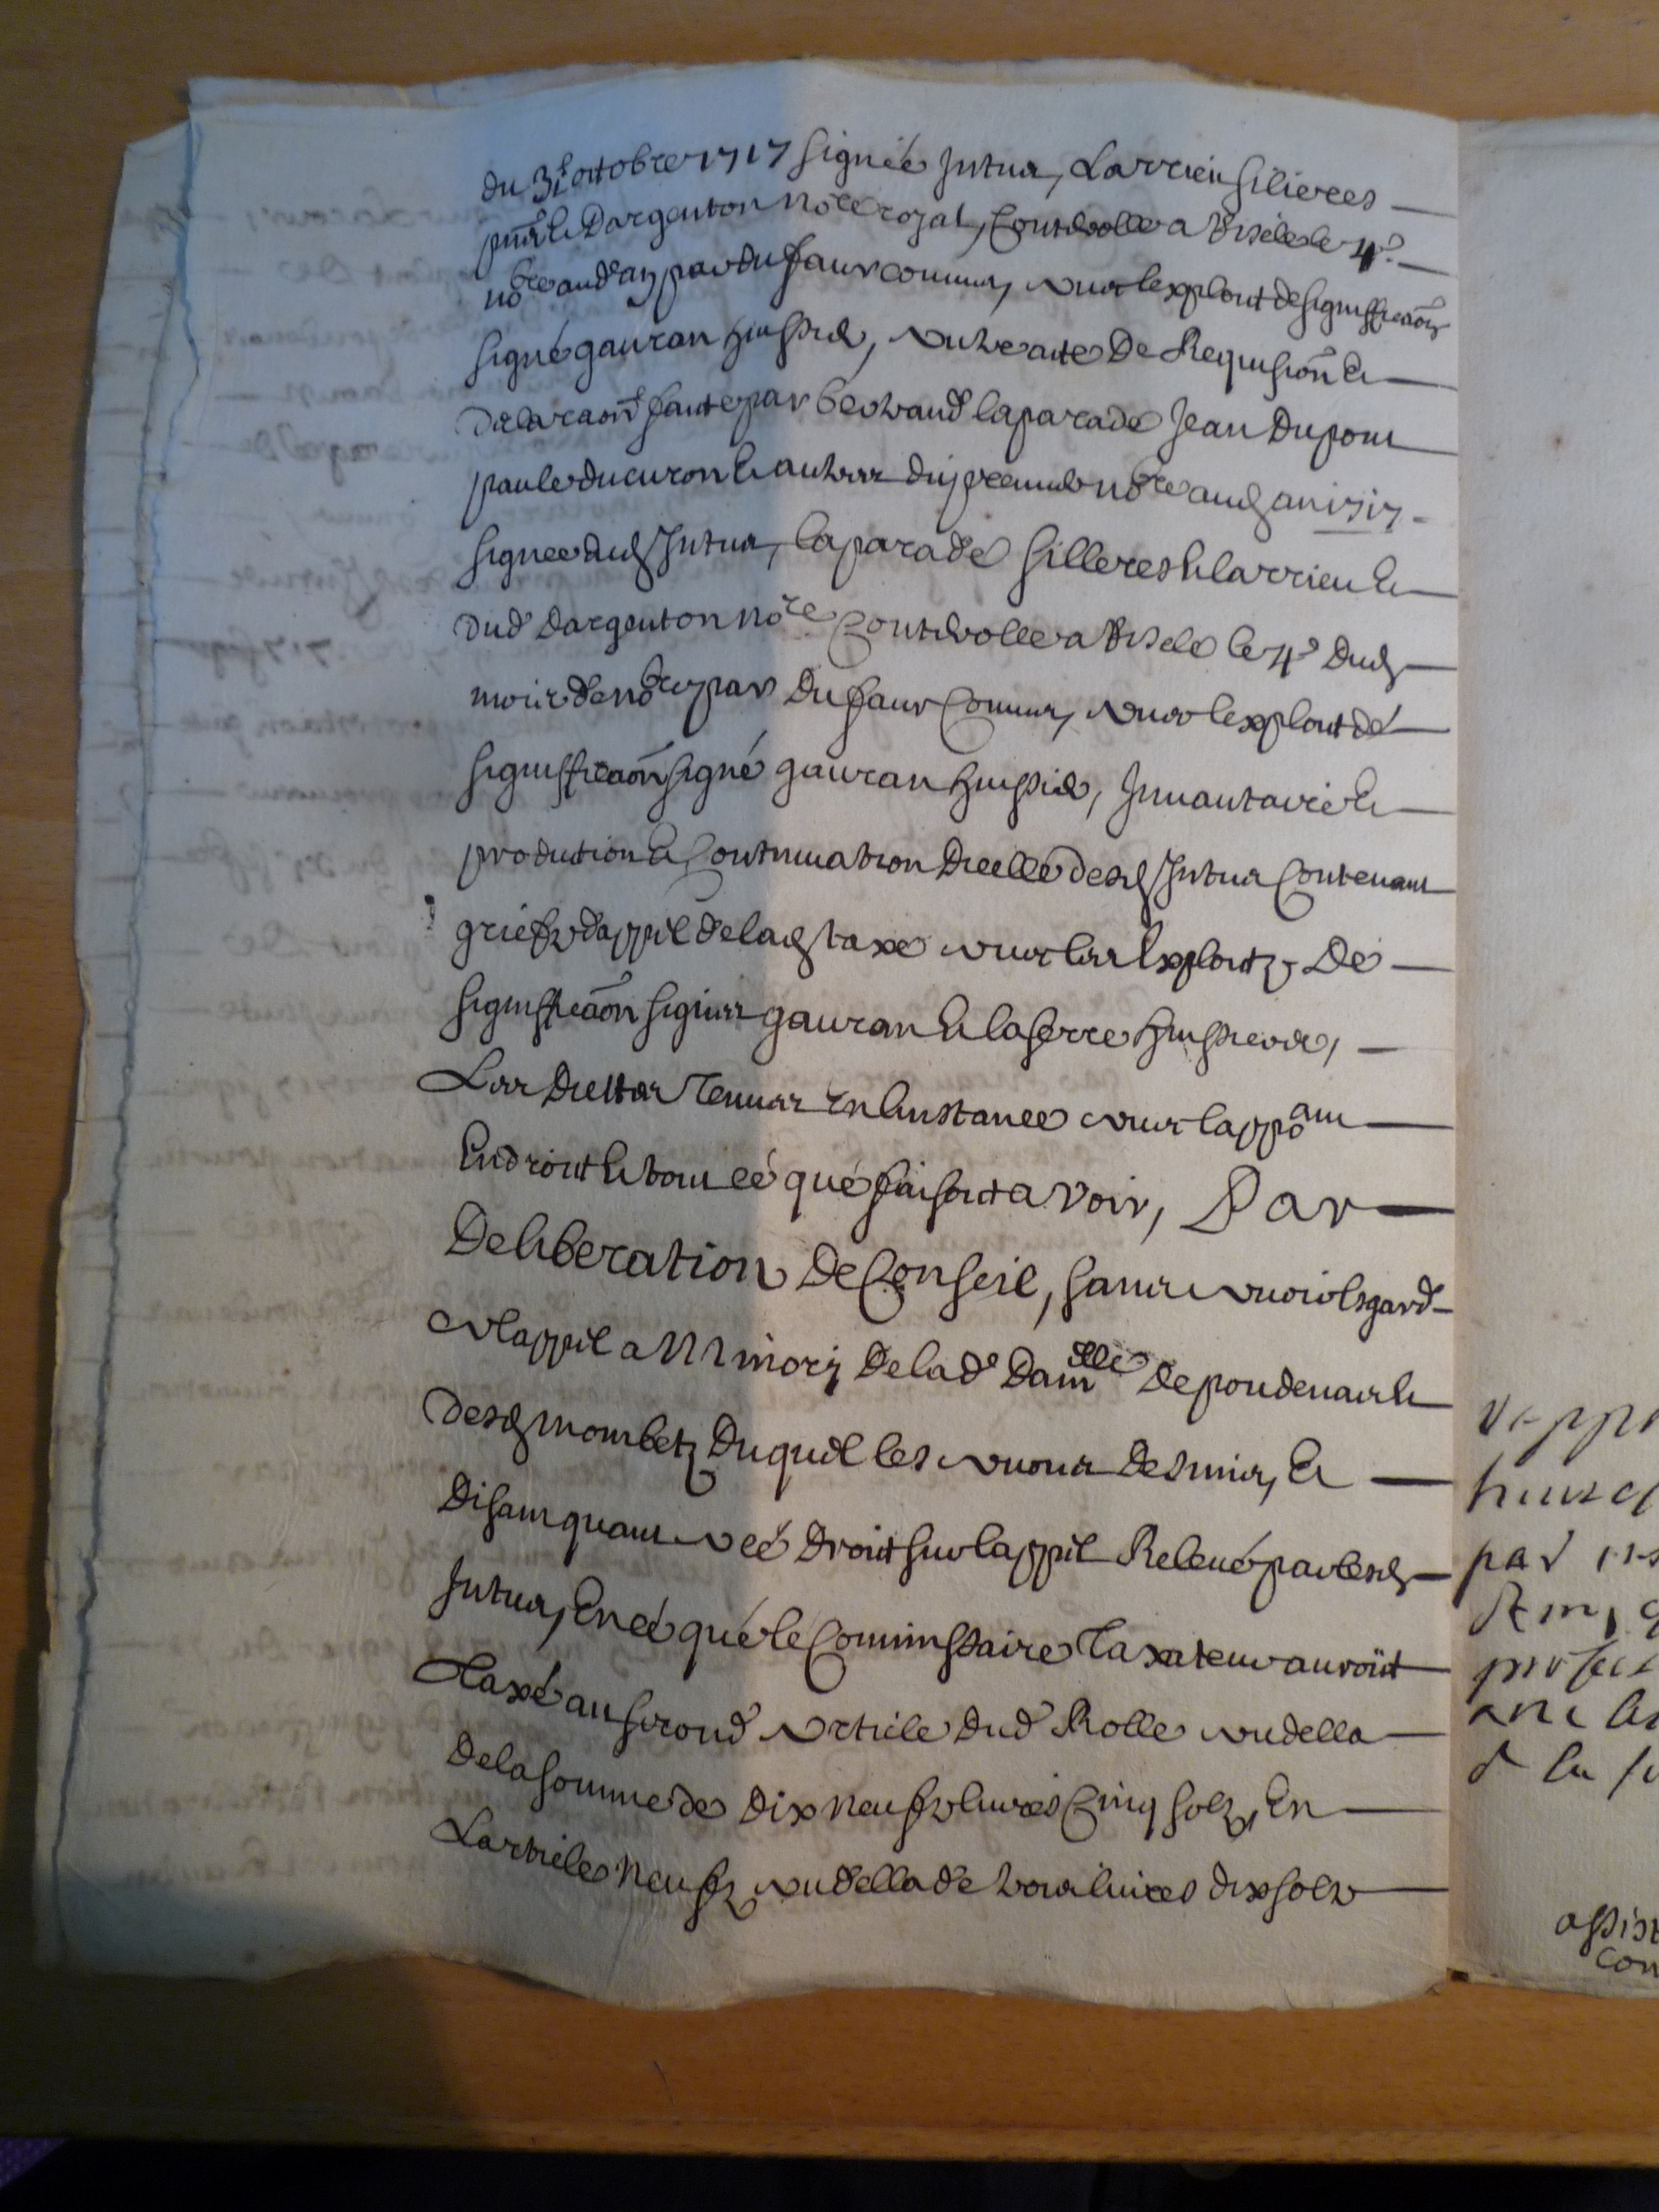 du 31e octobre 1717 signée Intua, Larrieu silieres
Dargenton no.re royal, Controlle a le 4e
no.bre aud an par Dufaur commis, avec lexploit de signiffica͠on
signé gauran huissier, autre acte De Requisi͠on et
Declara͠on faite par bertrand laparade Jean Dupour
paule ducuron et autres du premier no.bre aud an 1717
signee dud Intua, laparade silleres et larrieu et
dud Dargenton no.re Controlle a le 4e Dud
mois de no.bre par Dufaur Commis, avec lexploit de
signiffica͠on signé gauran huissier, Innantaire et
prodution et Continuation Dicelle desd Intua Contenant
griefz dappel de lad taxe avec les Exploitz De
signiffica͠on signes gauran et laserre huissiers,
Les Dicttes Tenues En linstance avec lappo.ant
En droit et tout cé qué faisoit a voir, Par
Deliberation De Conseil, sans avoir Esgard
a lappel a Minori de lad.e Dam.elle De poudenas et
desd mombetz Duquel les avons Desmis, et
Disant quant a cé Droit sur lappel Relevé par lesd
Intua, En cé qué le Commissaire Taxateur auroit
Taxé au second Article dud Rolle au della
De la somme de Dix neufz livres Cinq solz, En
Larticle Neufz au della de trois livres dix solz
par
assist
con